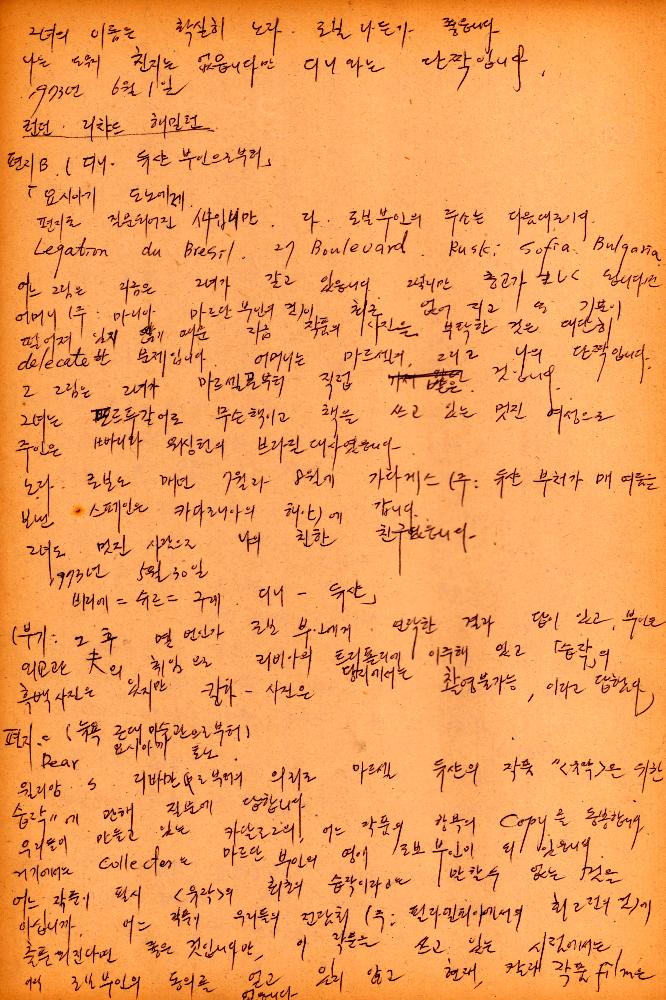 그녀의 이름은 확실히 노라. 로보 나는가 좋읍니다
나는 도와 친지는 없읍니다만 디니와는 단짝입니다.
1973년 6월 1일
런던. 리챠드 해밀턴
편지 B. ( 디니. 듀샹 부인으로부터 」
「요시아키 도노에게.
편지로 질문되어진 사입니만. 다. 로보부인의 주소는 다음대로이다.
Legation du Bresil. 27 Boulevard. Ruski Sofia. Bulgaria.
어느 그림은 지금은 그녀가 갖고 있읍니다
어머니 (주: 마니아 마르탄 부인의 것)이 최근 없어 지고 그 기분이
떨어져 있지 때문 지금 작품의 사진을 부탁한 것은 대단히
delecate한 문제입니다. 어머니는 마르셀과, 그리고 나의 단짝입니다.
그 그림은 그녀가 마르셀로부터 직접 받은 것입니다.
그녀는 포르투갈어로 무슨책이고 책을 쓰고 있는 멋진 여성으로
주인은 워싱턴의 브라질 대사였읍니다.
노라. 로보는 매년 7월과 8월에 가다케스 (주: 듀샹 부처가 매 여름을
보낸 스페인은 카다로니아의 해안)에 갑니다.
그녀는 멋진 사람으로 나의 친한 친구였읍니다.
1973년 5월 30일
비리에 = 쉬르 = 구레. 디니 - 듀샹」
(부기: 그 후 몇 번인가 로보 부인에게 연락한 결과 답이 있고, 부인은
외교관 夫의 취임으로 리비아의 트리폴리에 이주해 있고 「습작」의
흑백사진은 있지만 칼라-사진은 촬영불가능, 이라고 답했다)
편지 C (뉴욕 근대미술관으로부터)
Dear 요시아끼 도노
윌리암 S 리바만으로부터의 의뢰로 마르셀 듀샹의 작품 "<유작>은 위한
습작"에 관해 질문에 답합니다.
우리들이 만들고 있는 카탈로그의 어느 작품의 항목의 Copy을 동봉합니다.
거기에서는 Collector는 마르탄 부인의 영애 로보부인이 되 있읍니다
어느 작품이 필시 <유작>의 최초의 습작이라는 만할수 없는 것을
아십니까. 어느 작품이 우리들의 전람회 (주: 필라델피아에서의 회고전의 것)에
출품되진다면 좋은 것입니다만, 이 작품은 쓰고 있는 시점에서는,
아직 로보부인의 동의를 얻고 있지 않고 현재, 칼라 작품 film은
없읍니다